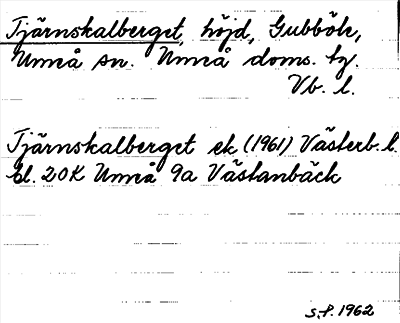 Tjärnskalberget, höjd, Gubböle,
Umeå sn. Umeå doms. tg.
Vb. l.
Tjärnskalberget ek (1961) Västerb. l.
bl. 20K Umeå 9a Västanbäck
S.F. 1962